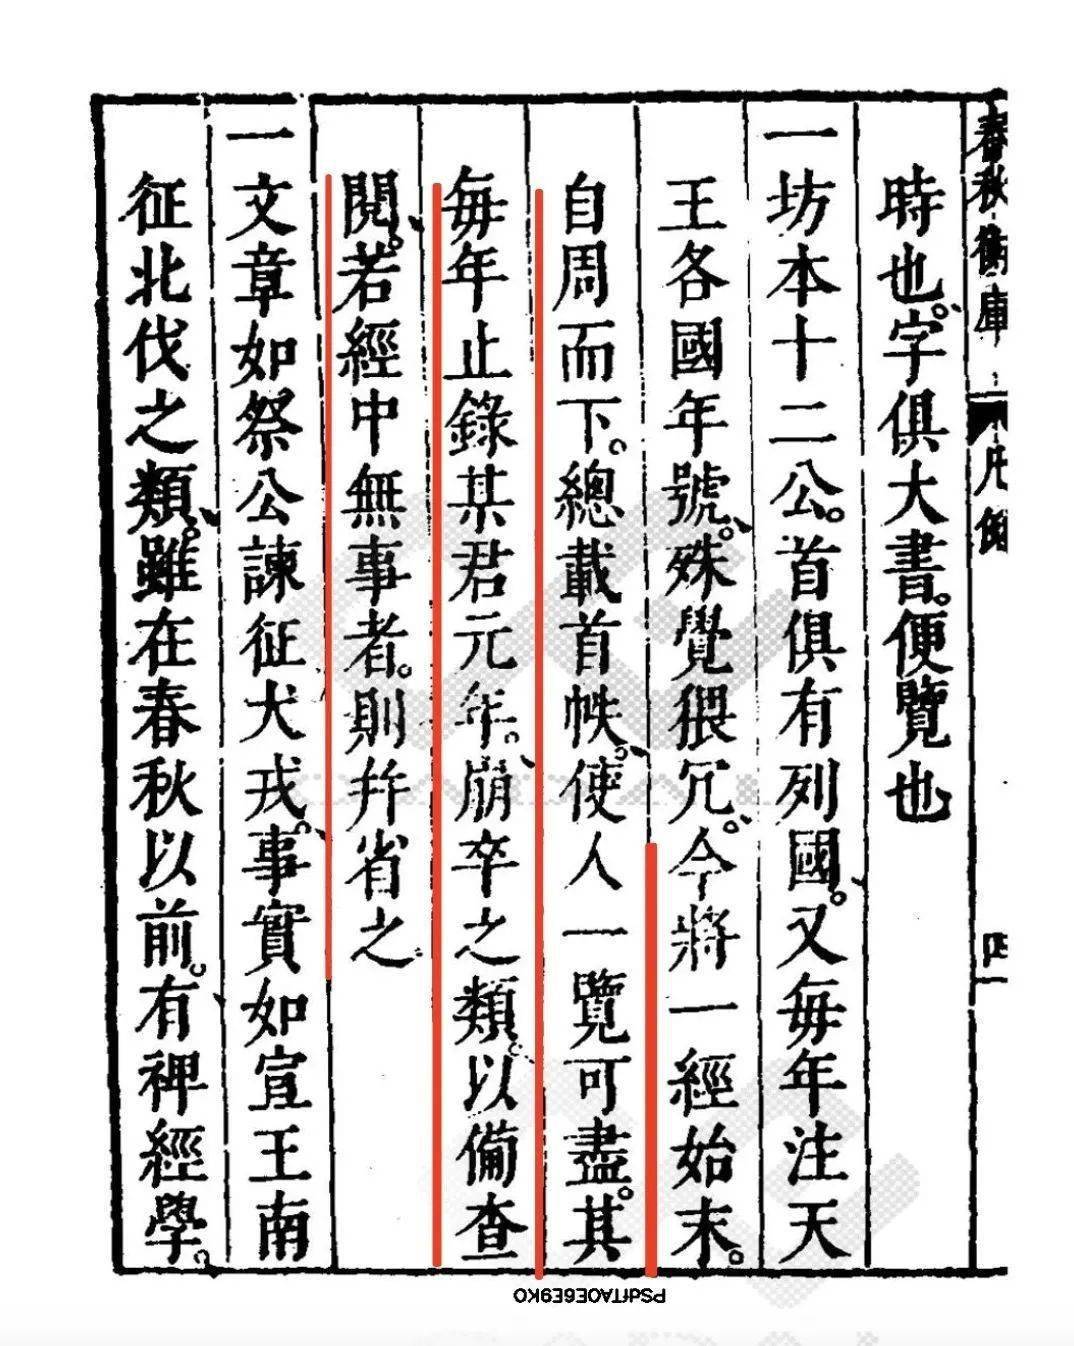 春秋衡庫 凡例 四
時也字俱大書便覽也
一坊本十二公首俱有列國又每年注天
王各國年號殊覺猥冗今將一經始末
自周而下總載首帙使人一覽可盡其
每年止錄某君元年崩卒之類以備查
閱若經中無事者則并省之
一文章如祭公諫征犬戎事實如宣王南
征北伐之類雖在春秋以前有裨經學